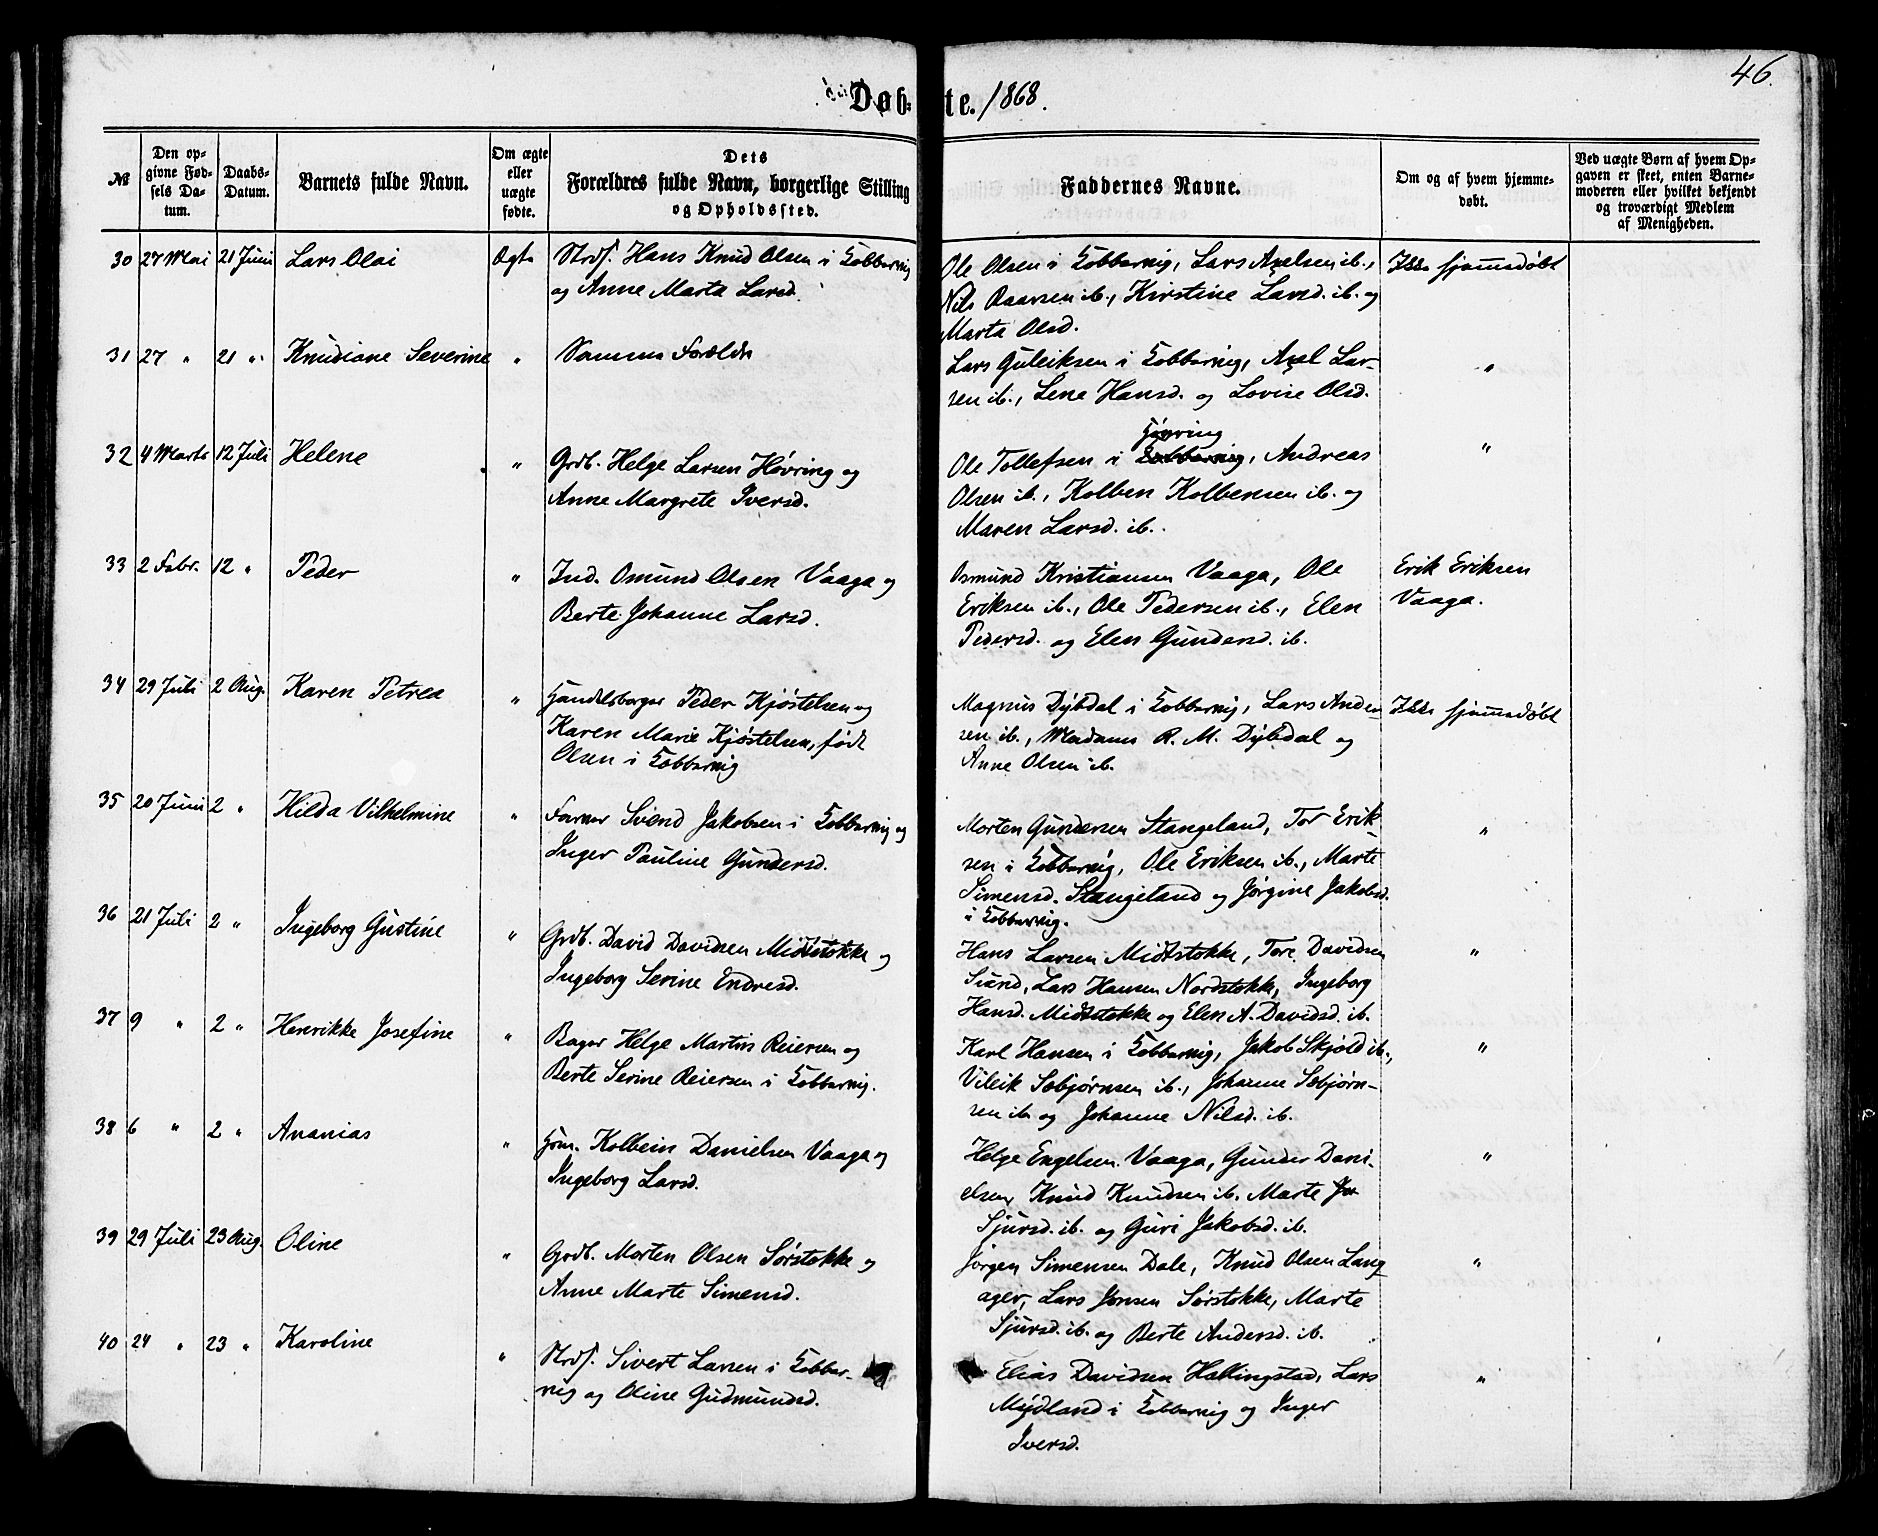 46.
Døb-te. 1868.
№
Den op-
givne Fød-
sels Da-
tum.
Daabs-
Datum.
Barnets fulde Navn.
Om ægte
eller
uægte
fødte.
Dets
Forældres fulde Navn, borgerlige Stilling
og Opholdssted.
Faddernes Navne.
Om og af hvem hjemme-
døbt.
Ved uægte Børn af hvem Op-
gaven er skeet, enten Barne-
moderen eller hvilket bekjendt
og troværdigt Medlem
af Menigheden.
30 27 Mai 21 Juni Lars Olai Ægte Strds. Hans Knud Olsen i Kobbervig
og Anne Marta Larsd.
Ole Olsen i Kobbervig, Lars Axelsen ib.,
Nils Baarsen ib., Kirstine Larsd. ib. og
Marta Olsd.
Ikke hjemmedøbt
31 27 " 21 " Knudiane Severine " Samme Forældre
Lars Guleiksen i Kobbervig, Axel Lar-
sen ib., Lene Hansd. og Lovise Olsd.
"
32 4 Marts 12 Juli Helene " Grdb. Helge Larsen Høvring og
Anne Margrete Iversd.
Høvring
Ole Tollefsen i Kobbervig, Andreas
Olsen ib., Kolben Kolbensen ib. og
Maren Larsd. ib.
"
33 2 Febr. 12 " Peder " Ind. Osmund Olsen Vaaga og
Berte Johanne Larsd.
Osmund Kristiansen Vaaga, Ole
Eriksen ib., Ole Pedersen ib., Elen
Pedersd. og Elen Gundersd. ib.
Erik Eriksen
Vaaga.
34 29 Juli 2 Aug. Karen Petrea " Handelsborger Peder Kjøstelsen og
Karen Marie Kjøstelsen, født
Olsen i Kobbervig
Magnus Dybdal i Kobbervig, Lars Ander-
sen ib., Madame R. M. Dybdal og
Anne Olsen ib.
Ikke hjemmedøbt
35 20 Juni 2 " Hilda Vilhelmine " Farver Svend Jakobsen i Kobbervig og
Inger Pauline Gundersd.
Morten Gundersen Stangeland, Tor Erik-
sen i Kobbervig, Ole Eriksen ib., Marte
Simensd. Stangeland og Jørgine Jakobsd.
i Kobbervig.
"
36 21 Juli 2 " Ingeborg Gustine " Grdb. David Davidsen Midtstokke og
Ingeborg Serine Endresd.
Hans Larsen Midtstokke, Tore Davidsen
Sund, Lars Hansen Nordstokke, Ingeborg
Hansd. Midtstokke og Elen A. Davidsd. ib.
"
37 9 " 2 " Henrikke Josefine " Bager Helge Martin Reiersen og
Berte Serine Reiersen i Kobbervig.
Karl Hansen i Kobbervig, Jakob Skjold ib.,
Vileik Sæbjørnsen ib., Johanne Sæbjørn-
sen ib. og Johanne Nilsd. ib.
"
38 6 " 2 " Ananias " Hsm. Kolbein Danielsen Vaaga og
Ingeborg Larsd.
Helge Engelsen Vaaga, Gunder Dani-
elsen, Knud Knudsen ib. Marte
Sjursd. ib. og Guri Jakobsd. ib.
"
39 29 Juli 23 Aug. Oline " Grdb. Morten Olsen Sørstokke og
Anne Marte Simensd.
Jørgen Simensen Dale, Knud Olsen Lang-
ager, Lars Jonsen Sørstokke, Marte
Sjursd. ib. og Berte Andersd. ib.
"
40 24 " 23 " Karoline " Strds. Sivert Larsen i Kobber-
vig og Oline Gudmundsd.
Elias Davidsen Hallingstad, Lars
Mydland i Kobbervig og Inger
Iversd.
"